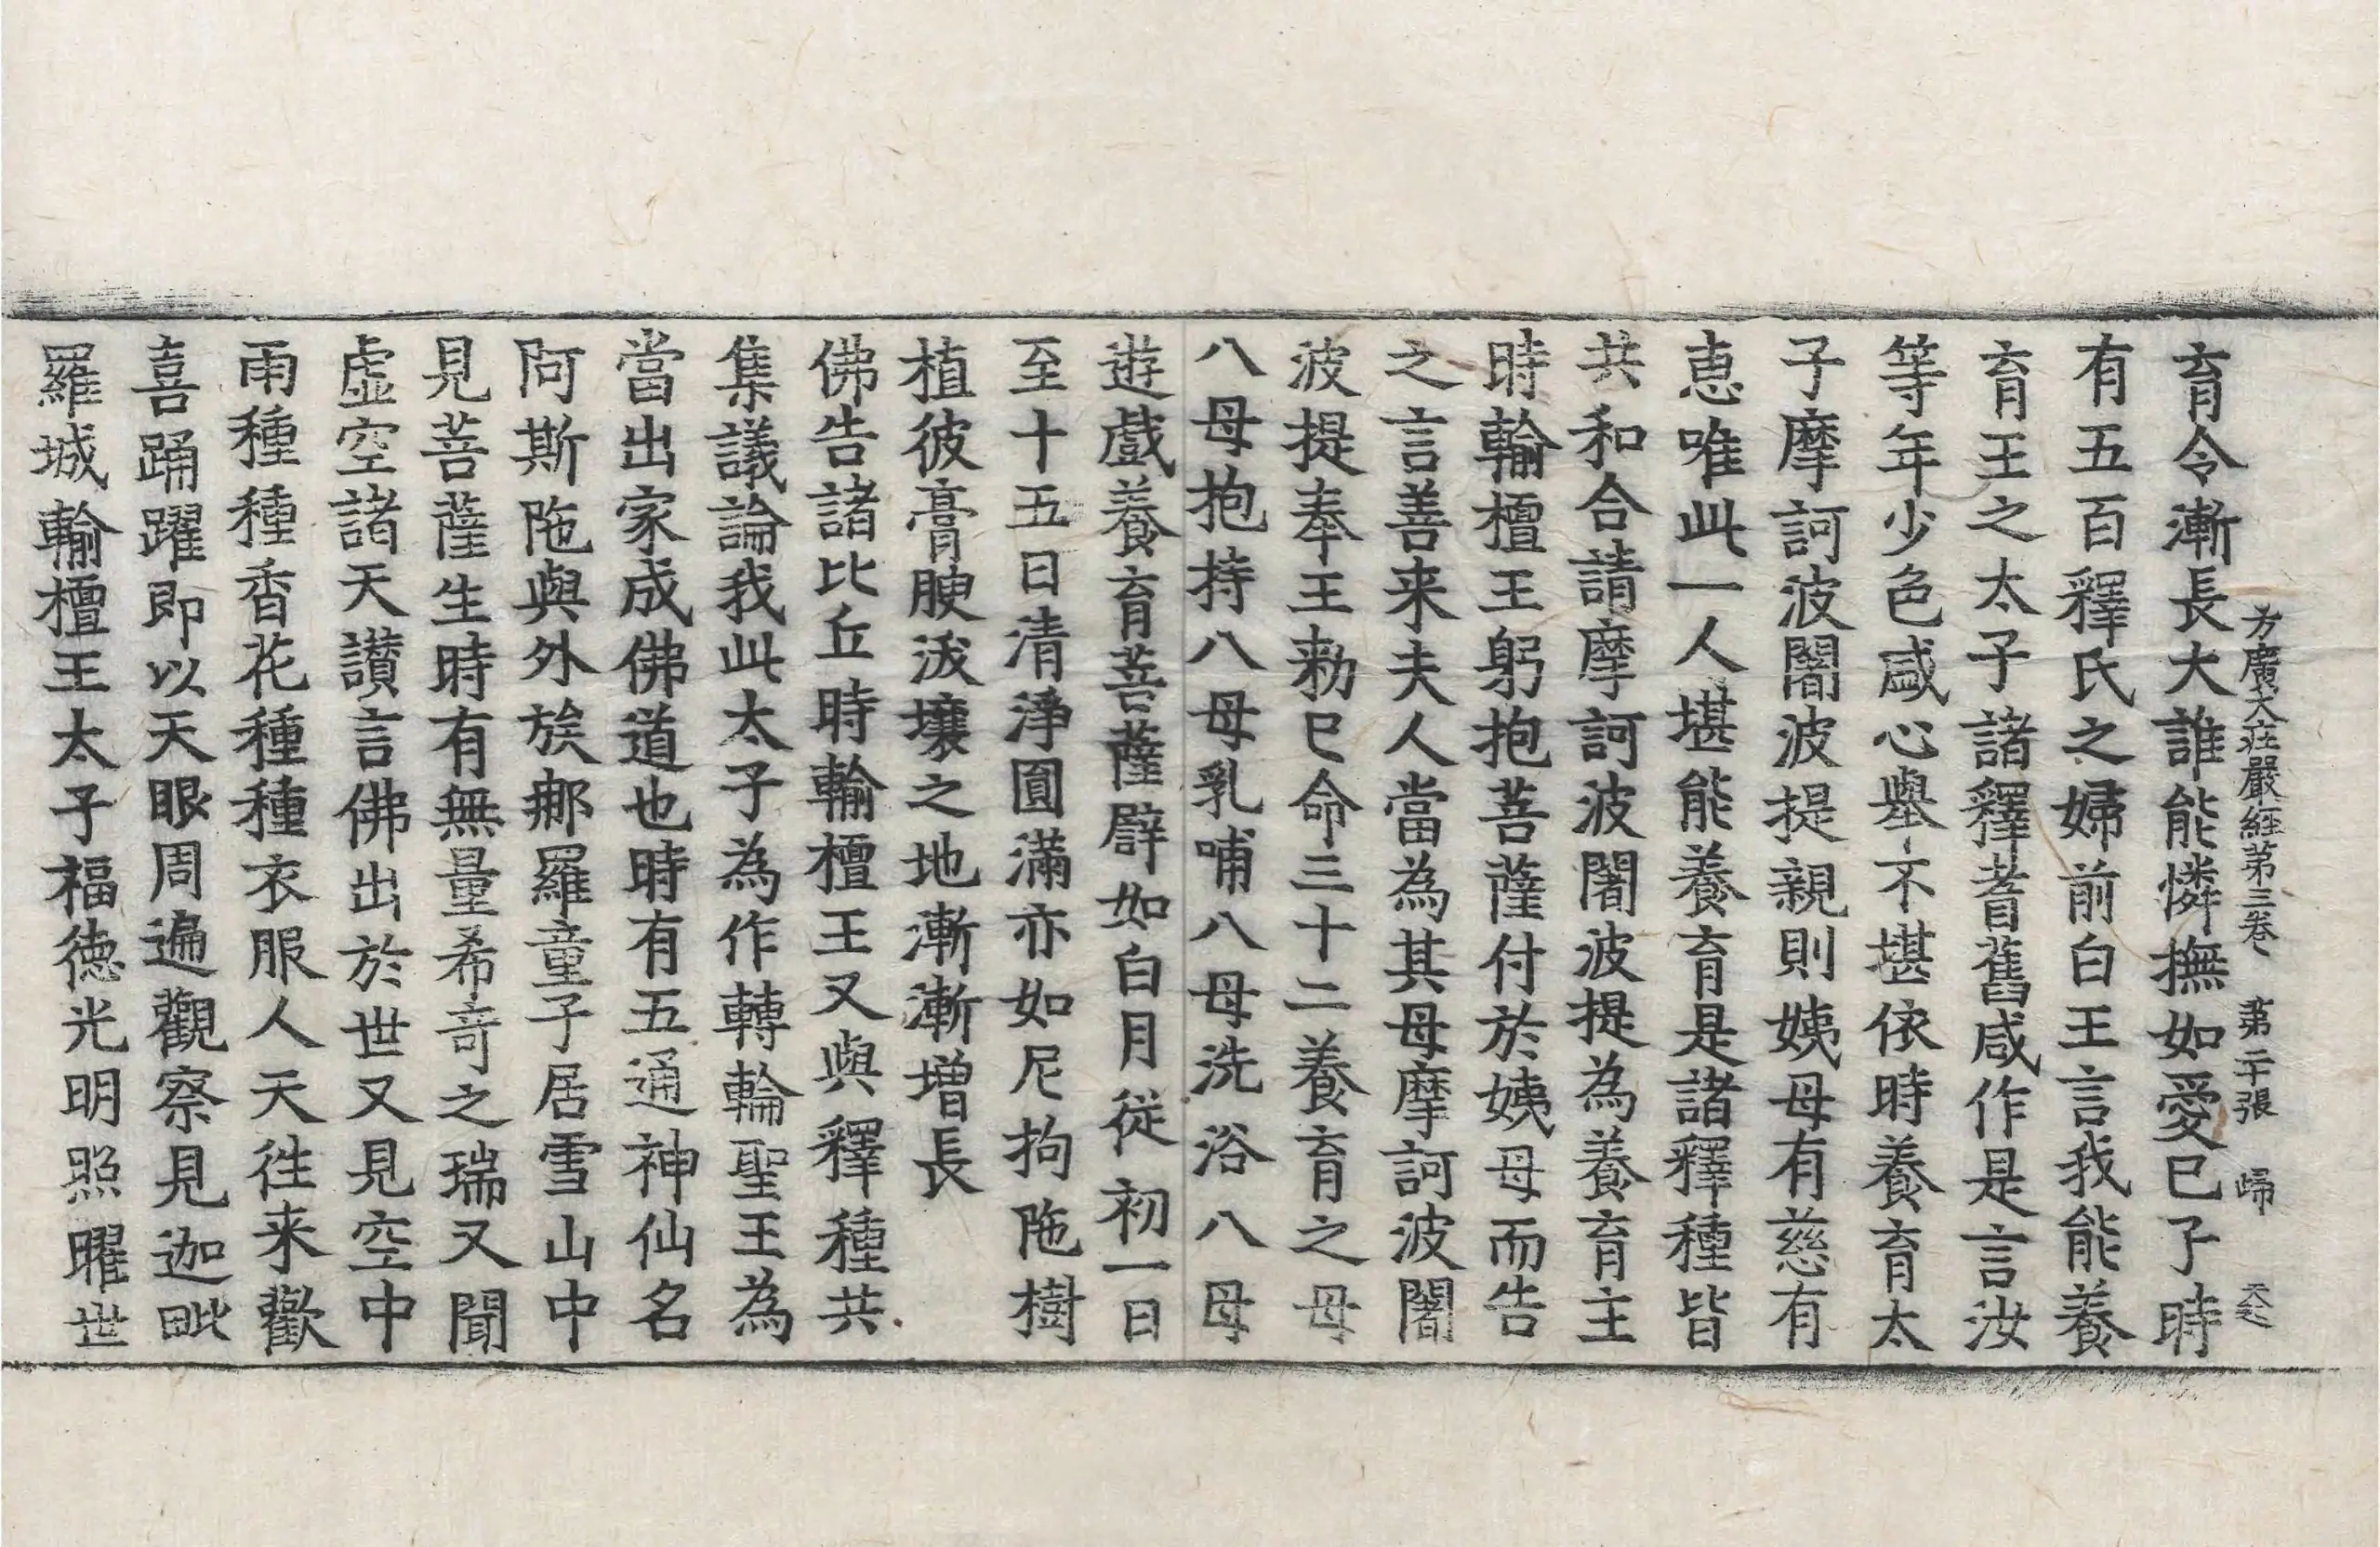 方廣大莊嚴經第三卷 第二十張 歸
育令漸長大誰能憐撫如愛己子時
有五百釋氏之婦前白王言我能養
育王之太子諸釋耆舊咸作是言汝
等年少色盛心舉不堪依時養育太
子摩訶波闍波提親則姨母有慈有
恵唯此一人堪能養育是諸釋種皆
共和合請摩訶波闍波提為養育主
時輸檀王躬抱菩薩付於姨母而告
之言善来夫人當為其母摩訶波闍
波提奉王勑已命三十二養育之母
八母抱持八母乳哺八母洗浴八母
遊戲養育菩薩譬如白月從初一日
至十五日清淨圓滿亦如尼拘陁樹
植彼膏腴沃壤之地漸漸增長
佛告諸比丘時輸檀王又與釋種共
集議論我此太子為作轉輪聖王為
當出家成佛道也時有五通神仙名
阿斯陁與外族那羅童子居雪山中
見菩薩生時有無量希奇之瑞又聞
虛空諸天讃言佛出於世又見空中
雨種種香花種種衣服人天往来歡
喜踊躍即以天眼周遍觀察見迦毗
羅城輸檀王太子福德光明照曜世